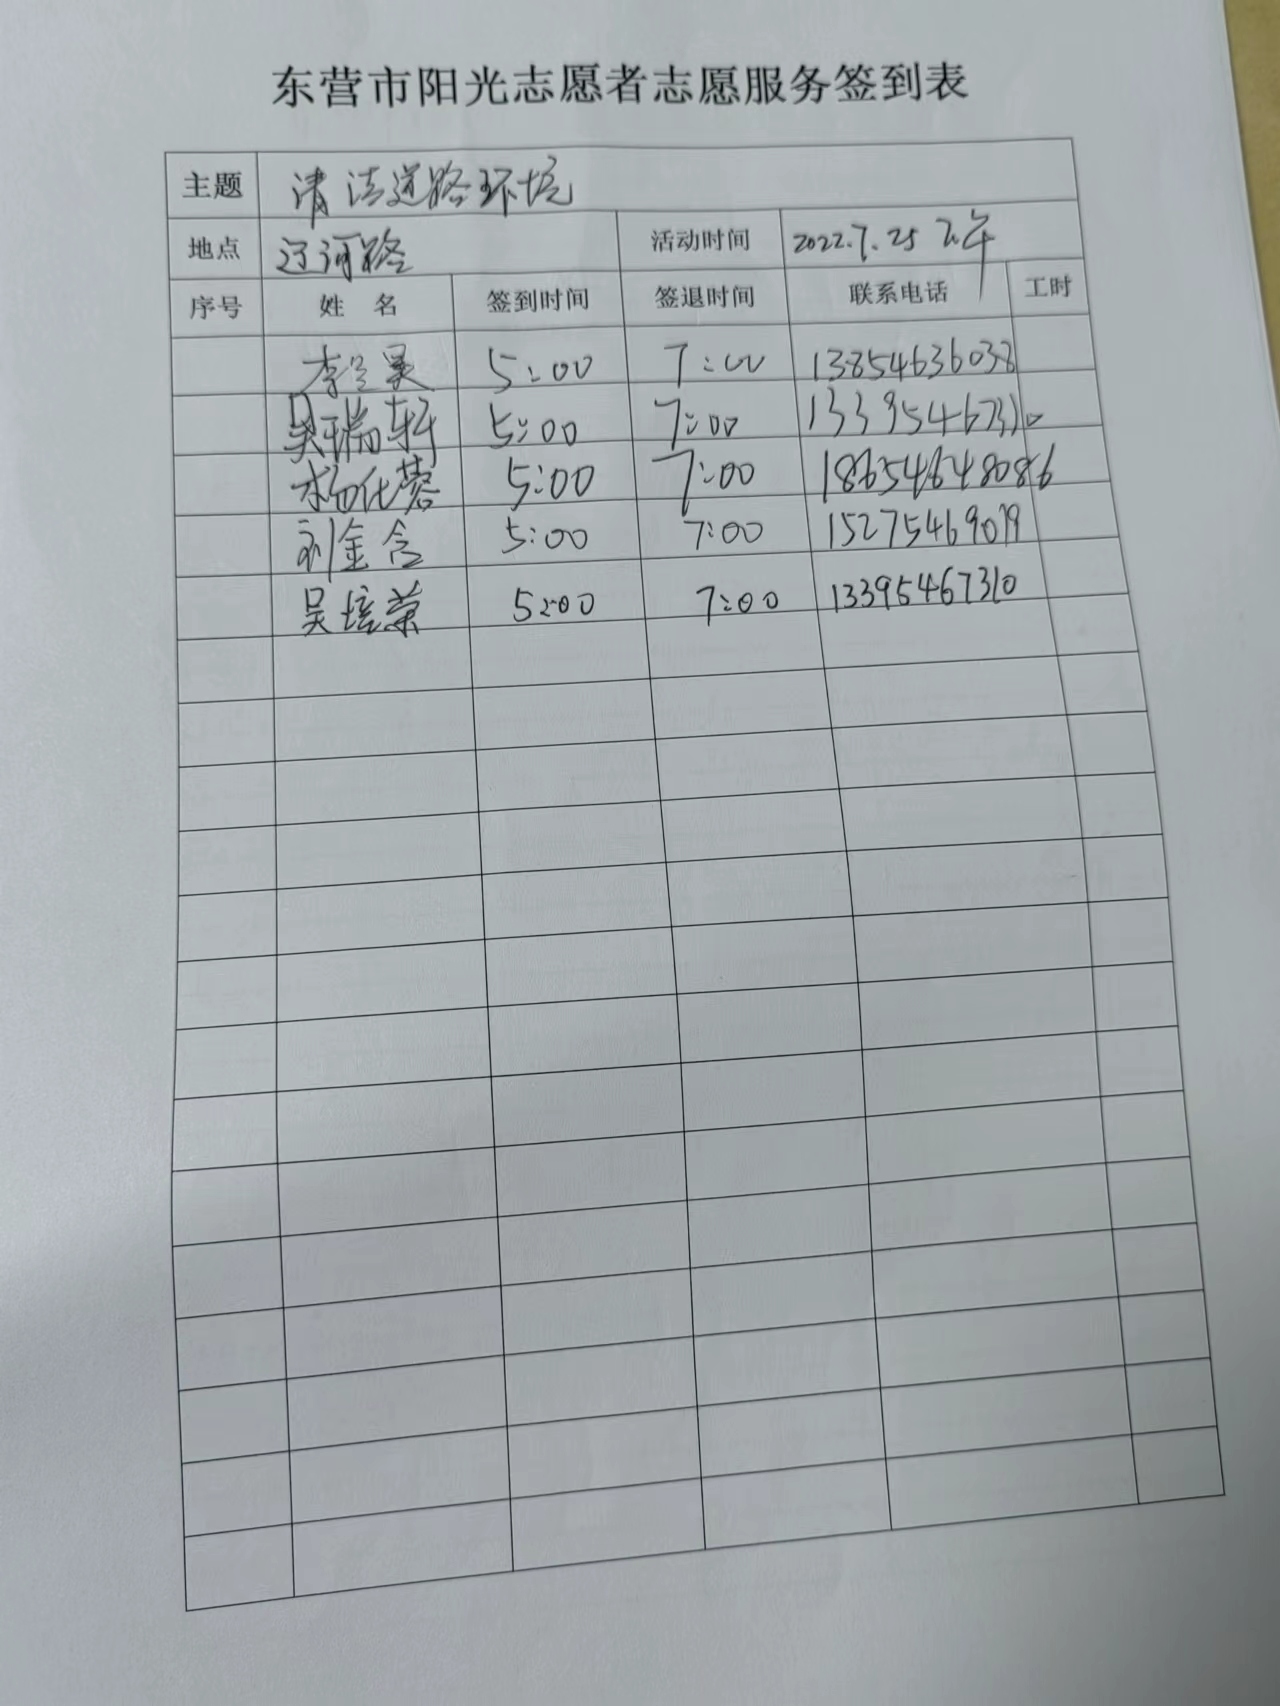 东营市阳光志愿者志愿服务签到表
主题 清洁道路环境
地点 辽河路 活动时间 2022.7.25 下午
序号 姓 名 签到时间 签退时间 联系电话 工时
李兰昊 5:00 7:00 13854636038
吴瑞轩 5:00 7:00 13395467310
杨化蓉 5:00 7:00 18654648086
刘金含 5:00 7:00 15275469079
吴培荣 5:00 7:00 13395467310